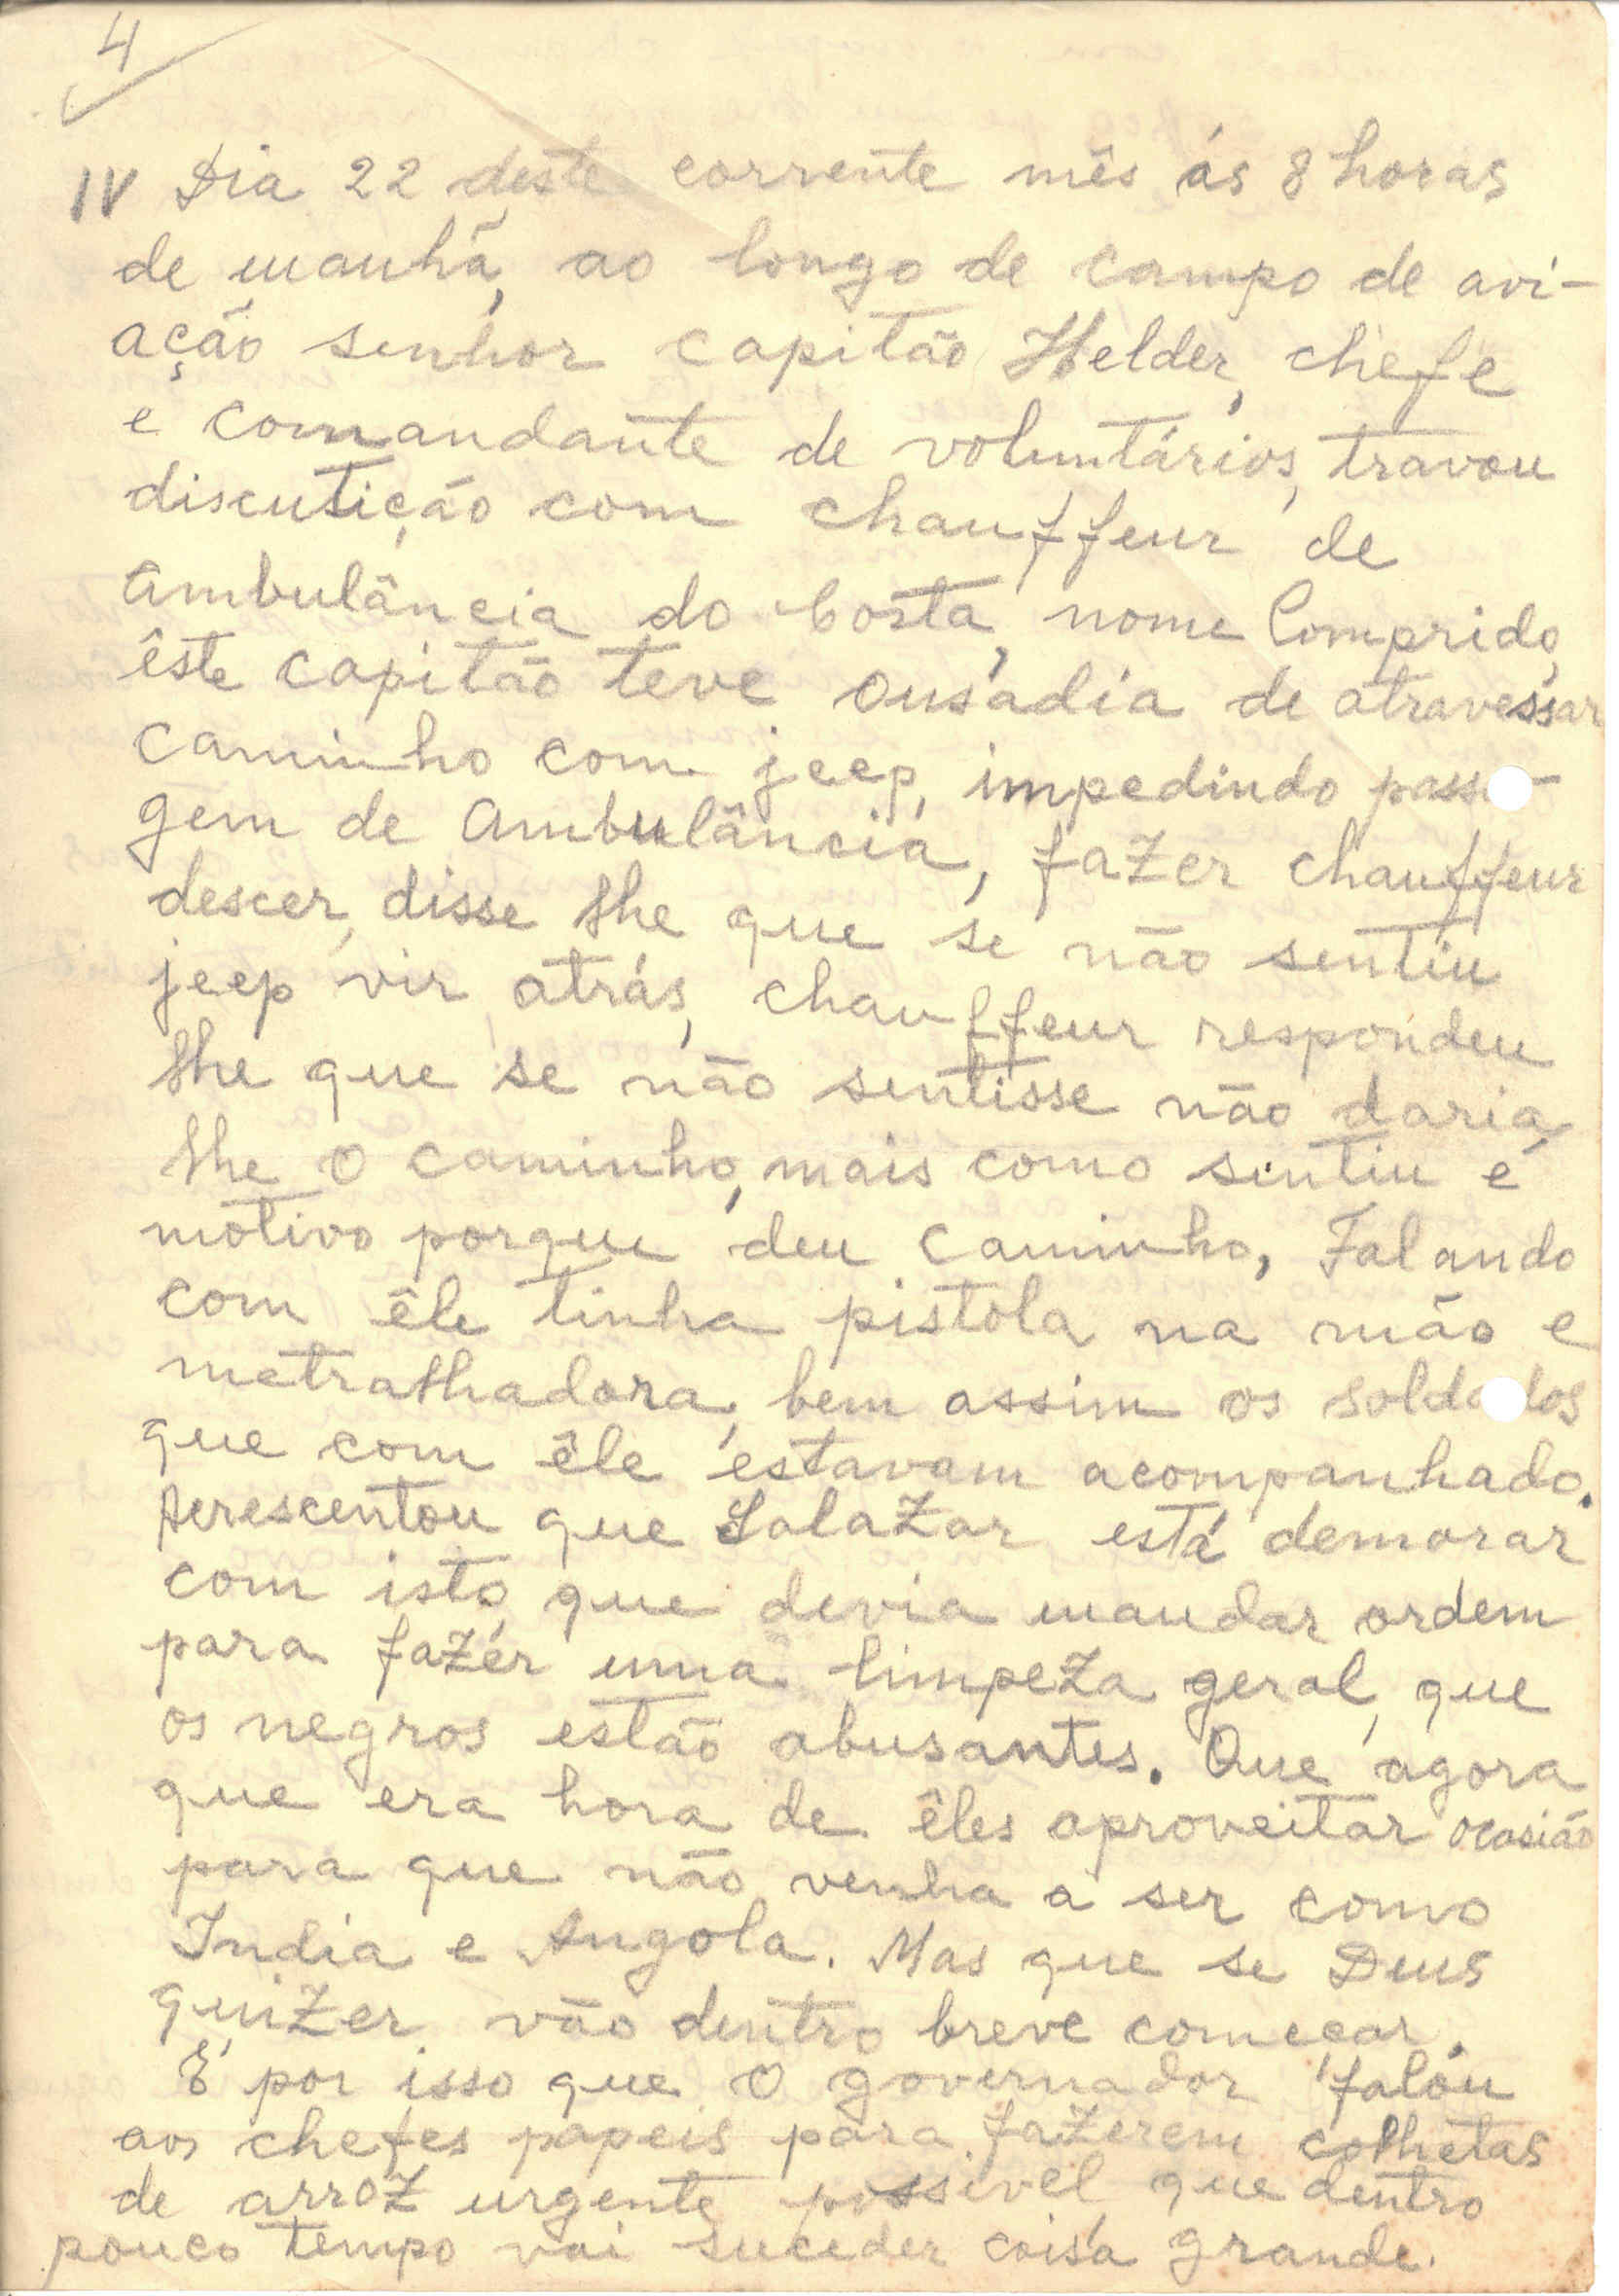 4
IV Dia 22 deste corrente mês ás 8 horas
de manhã, ao longo de campo de avi-
ação senhor capitão Helder, chefe
e comandante de voluntários, travou
discutição com chauffeur de
Ambulância do Costa, nome Comprido,
êste capitão teve ousadia de atravessar
caminho com jeep, impedindo passa-
gem de Ambulância, fazer chauffeur
descer, disse lhe que se não sentiu
jeep vir atrás, chauffeur respondeu
lhe que se não sentisse não daria
lhe o caminho, mais como sentiu é
motivo porque deu caminho, Falando
com êle tinha pistola na mão e
metralhadora, bem assim os soldados
que com êle estavam acompanhado.
Acrescentou que Salazar está demorar
com isto, que devia mandar ordem
para fazer uma limpeza geral, que
os negros estão abusantes. Que agora
que era hora de êles aproveitar ocasião
para que não venha a ser como
India e Angola. Mas que se Deus
quizer vão dentro breve começar.
É por isso que o governador falou
aos chefes papeis para fazerem colhetas
de arroz urgente possivel, que dentro
pouco tempo vai suceder coisa grande.